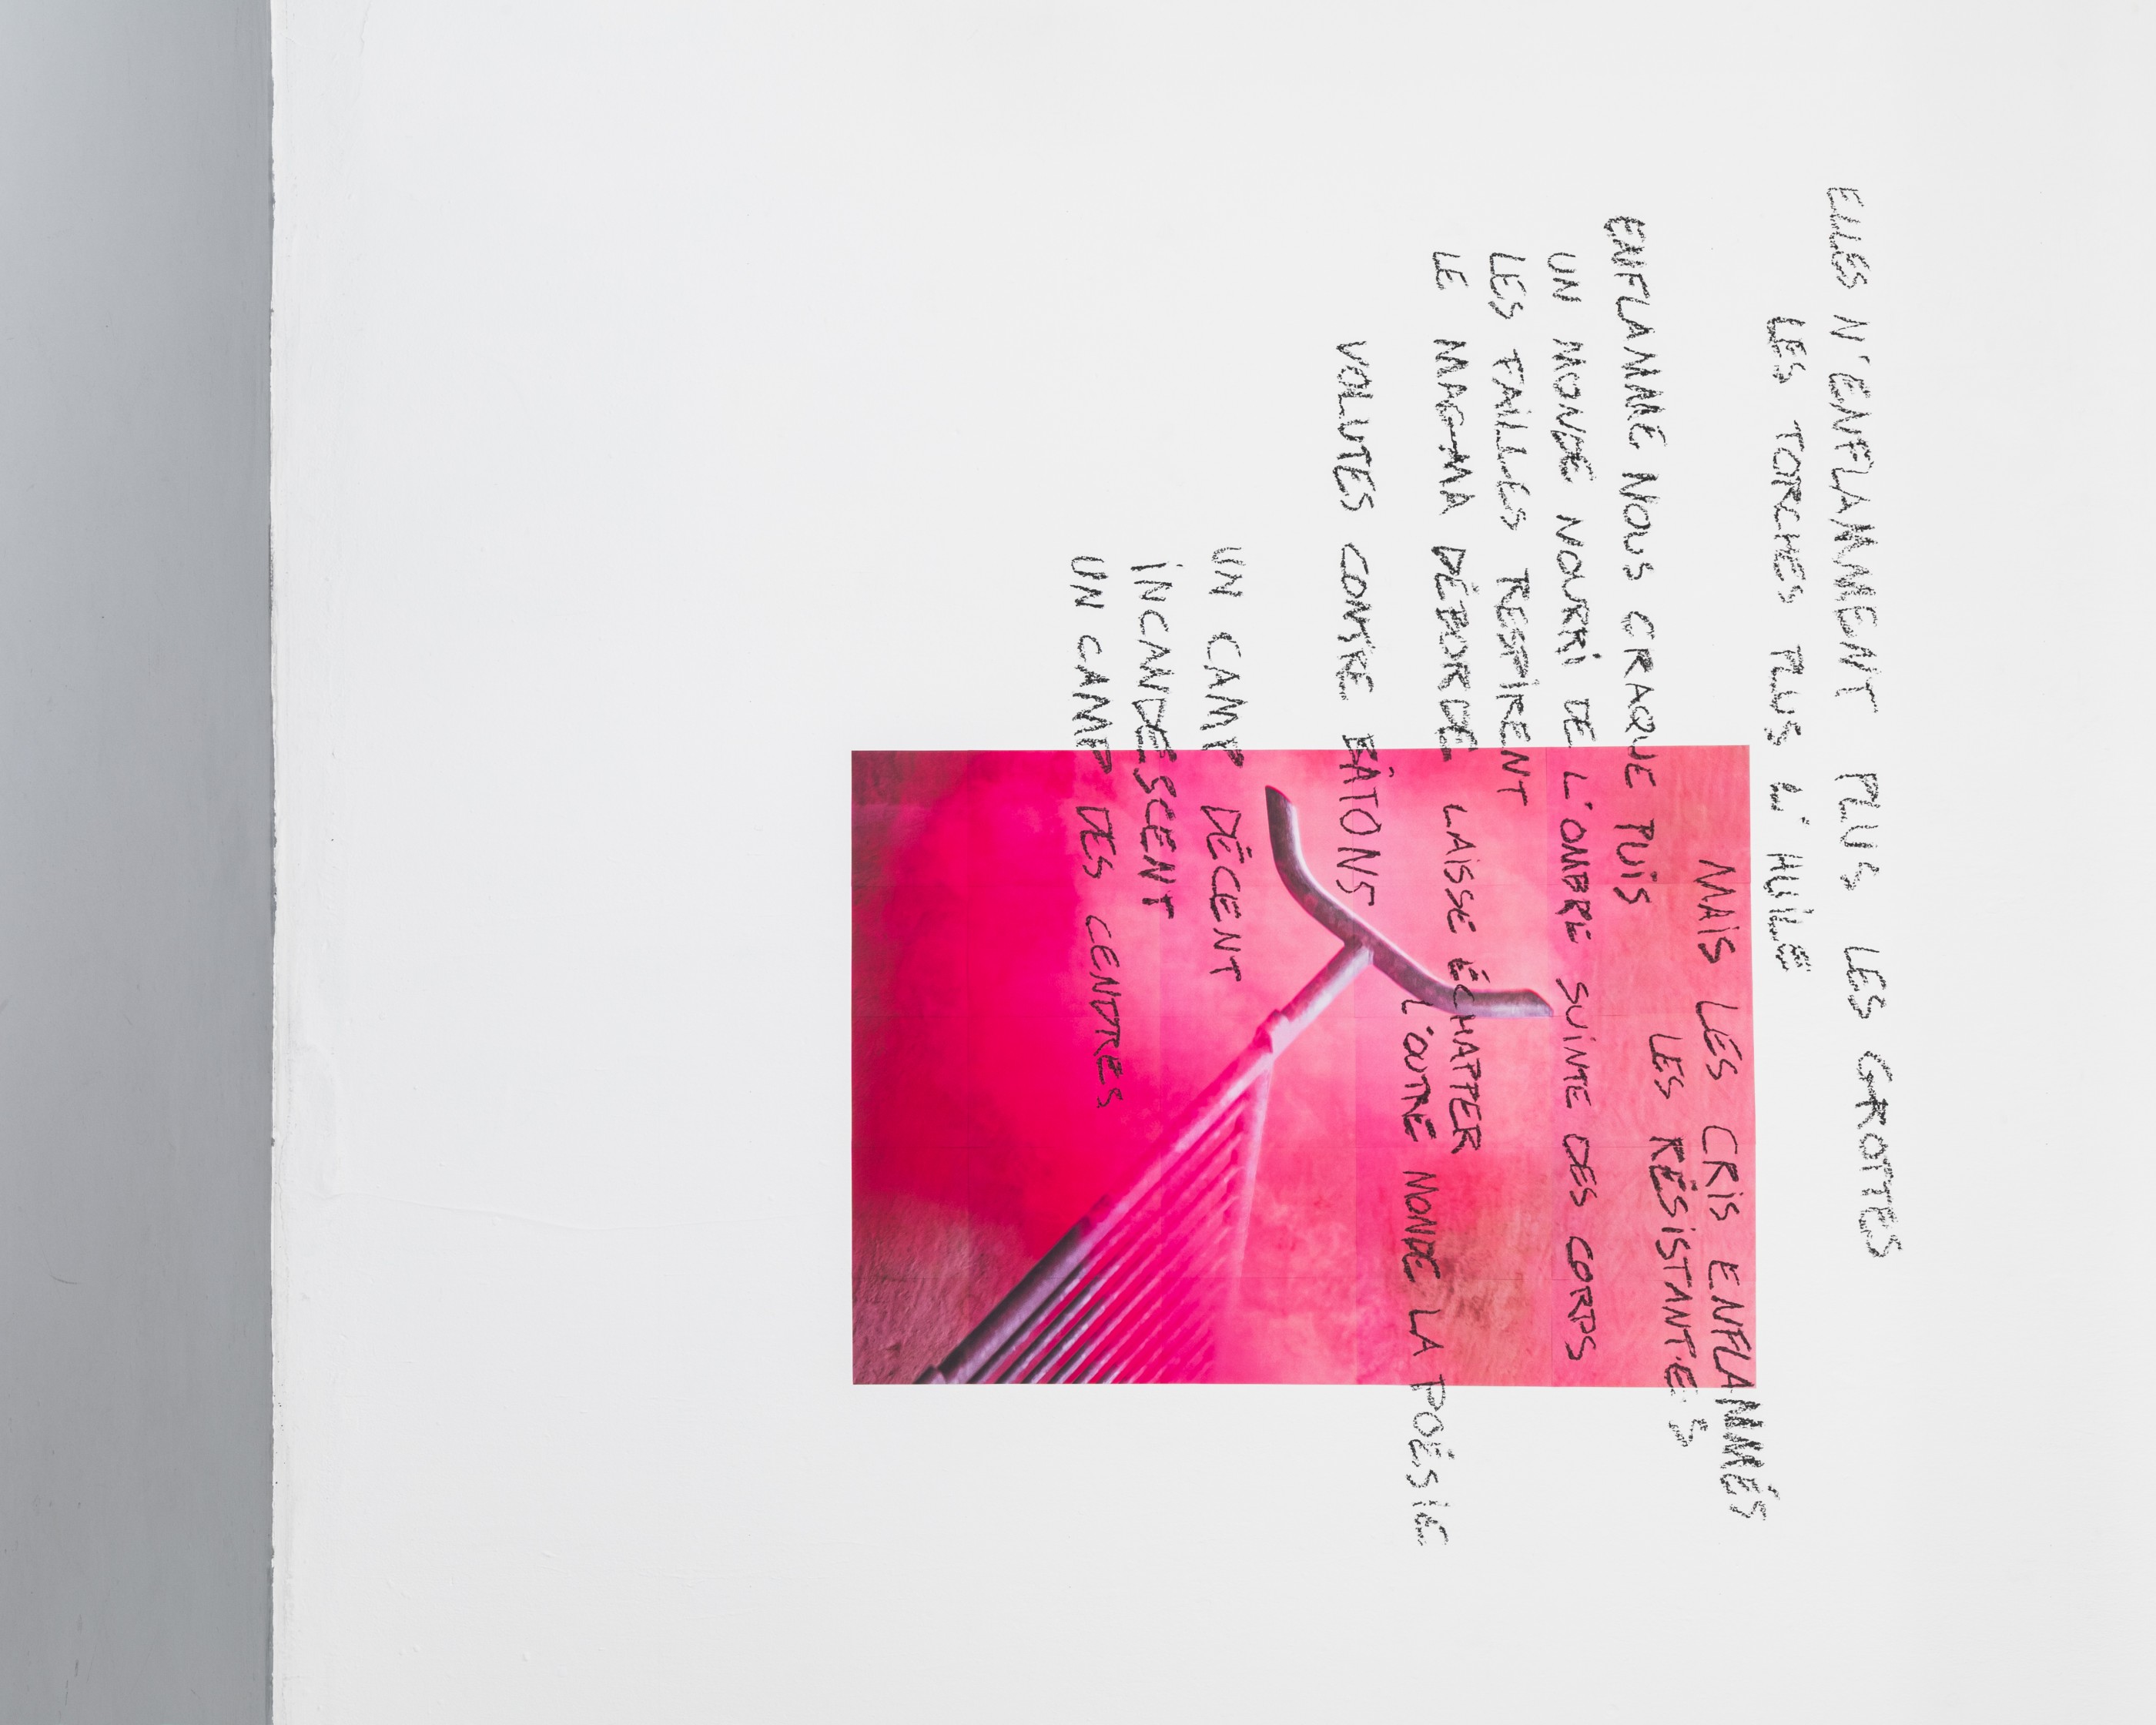 ELLES N'ENFLAMMENT PLUS LES GROTTES
LES TORCHES PLUS L'HUILE
MAIS LES CRIS ENFLAMMÉS
LES RÉSISTANT·E·S
ENFLAMME NOUS CRAQUE PUIS
UN MONDE NOURRI DE L'OMBRE SUINTE DES CORPS
LES FAILLES RESPIRENT
LE MAGMA DÉBORDE LAISSE ÉCHAPPER
L'OUTRE MONDE LA POÉSIE
VOLUTES CONTRE BÂTONS
UN CAMP DÉCENT
INCANDESCENT
UN CAMP DES CENDRES